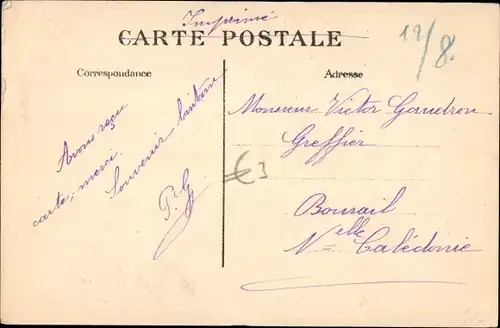 Imprimé
CARTE POSTALE
12/8
Correspondance
Adresse
Avons reçu
carte, merci.
Souvenir lointain
P. G
Monsieur Victor
Greffier
Bourail
Nelle Calédonie
€ 3